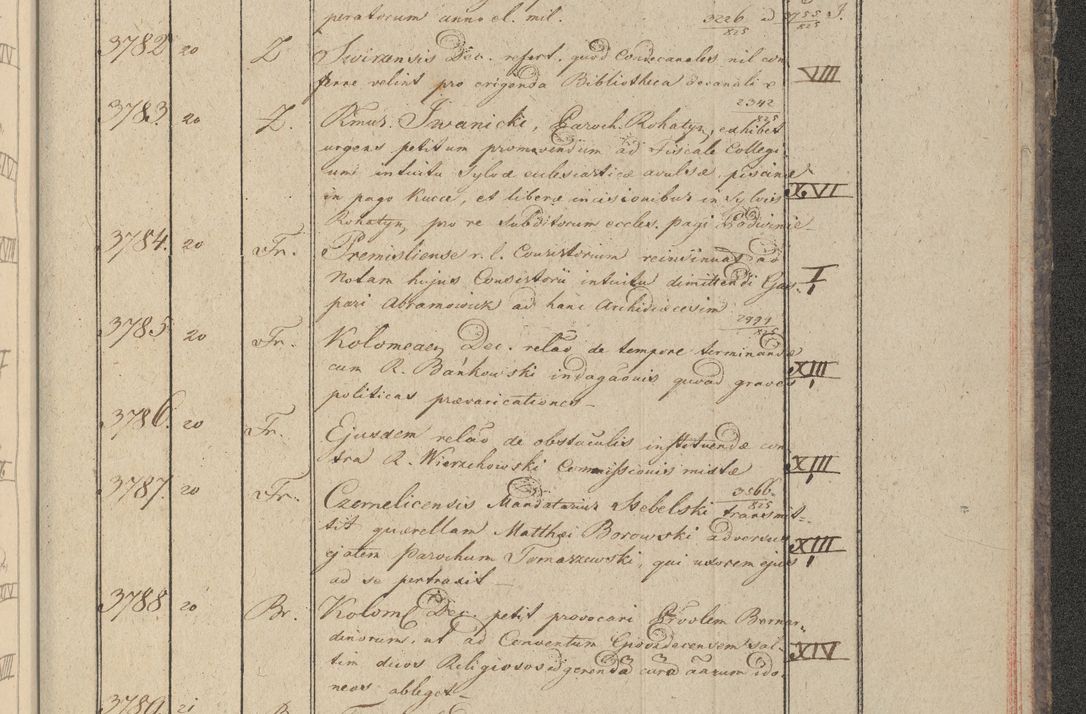 peratorum anno el. mil. 3226/825 ad 3755/825 J.
3782 20 Z Swirzensis Dec. refert. quod Condecanales nil con VIII
ferre velint pro erigenda Bibliotheca decanali
2342/825
3783. 20 Z. Rmus. Iwanicki, Paroch. Rohatyn, exhibet
urgens petitum promovendum ad Fiscale Collegi
um intuitu Sylvæ ecclesiasticæ avulsæ, piscinæ
in pago Kucce, et liberæ incisionibus in Sylvis XVI
Rohatyn, pro re subditorum eccles. pagi
3784. 20 Fr. Premisliense r. l. Consistorium reinsinuat ad
Notam hujus Consistorii intuitu dimittendi Gas- I
pari Abramowicz ad hanc Archidiœcesim
2991/825
3785. 20 Fr. Kolomeaen Dec. relaõ de tempore terminandæ
cum R. Bańkowski indagaõnis quoad graves XIII
politicas prævaricationes
3786. 20 Fr. Ejusdem relaõ de obstaculis instituendæ con
tra R. Wierzchowski Commissionis mixtæ XIII
3787. 20 Fr. Czernelicensis Mandatarius Hebelski 3566/825 transmit-
tit quærellam Matthæi Borowski adversus XIII
ejatem Parochum Tomaszewski, qui uxorem ejus
ad se pertraxit
3788 20 Br. Kolom Dec. petit provocari Prvvlem Bernar-
dinorum, ut ad Conventum Gwozdecensem sal- XIV
tim duos Religiosos ad gerenda cura aãrum ido-
neos ableget
3789. 21 B